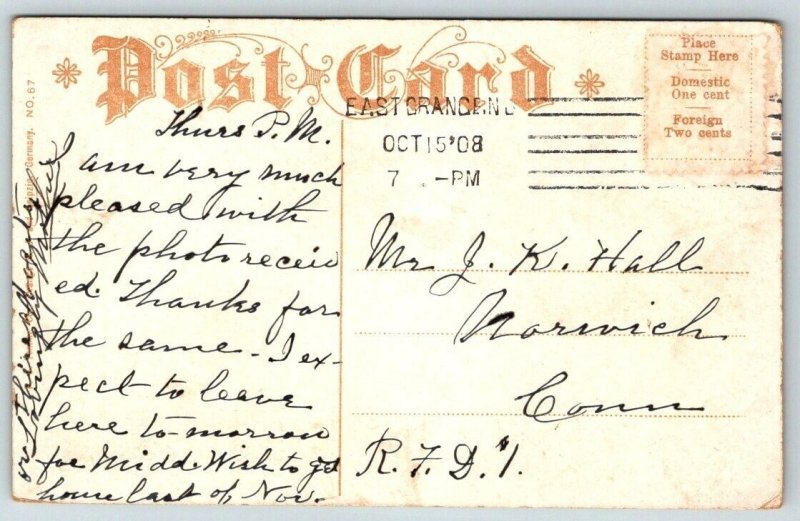 Post Card
Place
Stamp Here
Domestic
One cent
Foreign
Two cents
EAST ORANGE N.J.
OCT 15 '08
7 -PM
Germany. NO. 67
Thurs P.M.
I am very much
pleased with
the photo receiv
ed. Thanks for
the same - I ex-
pect to leave
here to-morrow
for Midd. Wish to get
home last of Nov.
Mr J. K. Hall
Norwich
Conn
R. F. D. #1.